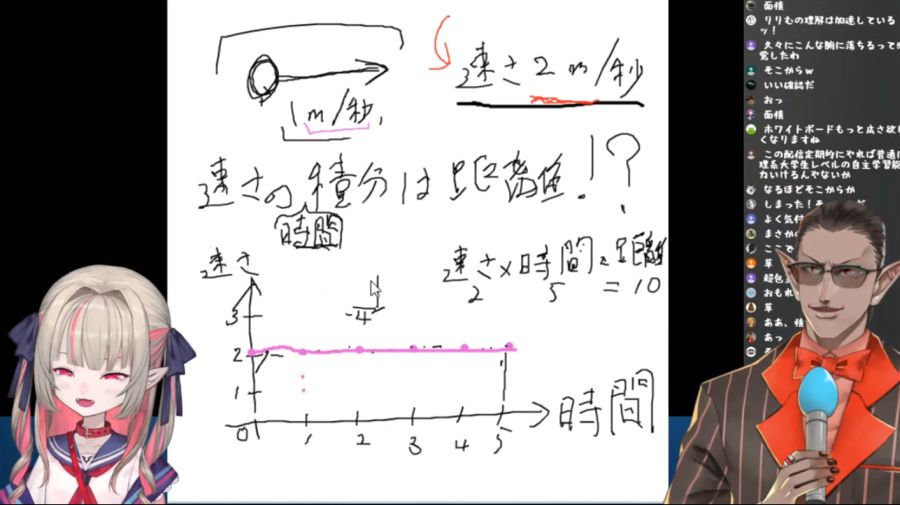 速さ 2 m/秒
1 m/秒.
速さの積分は距離!?
時間
速さ
速さ×時間=距離
2 5 = 10
3
-4
2
1
0 1 2 3 4 5
時間
面積
りりむの理解は加速している
ッ!
久々にこんな腕に落ちるって
覚したわ
そこからw
いい確認だ
おっ
面積
ホワイトボードもっと広さ欲し
くなりますね
この配信定期的にやれば普通に
理系大学生レベルの自主学習能
力いけるんやないか
なるほどそこからか
しまった!そ
よく気付
まさかの
ここで
草
超包
おもれ
草
ああ、積
あっ